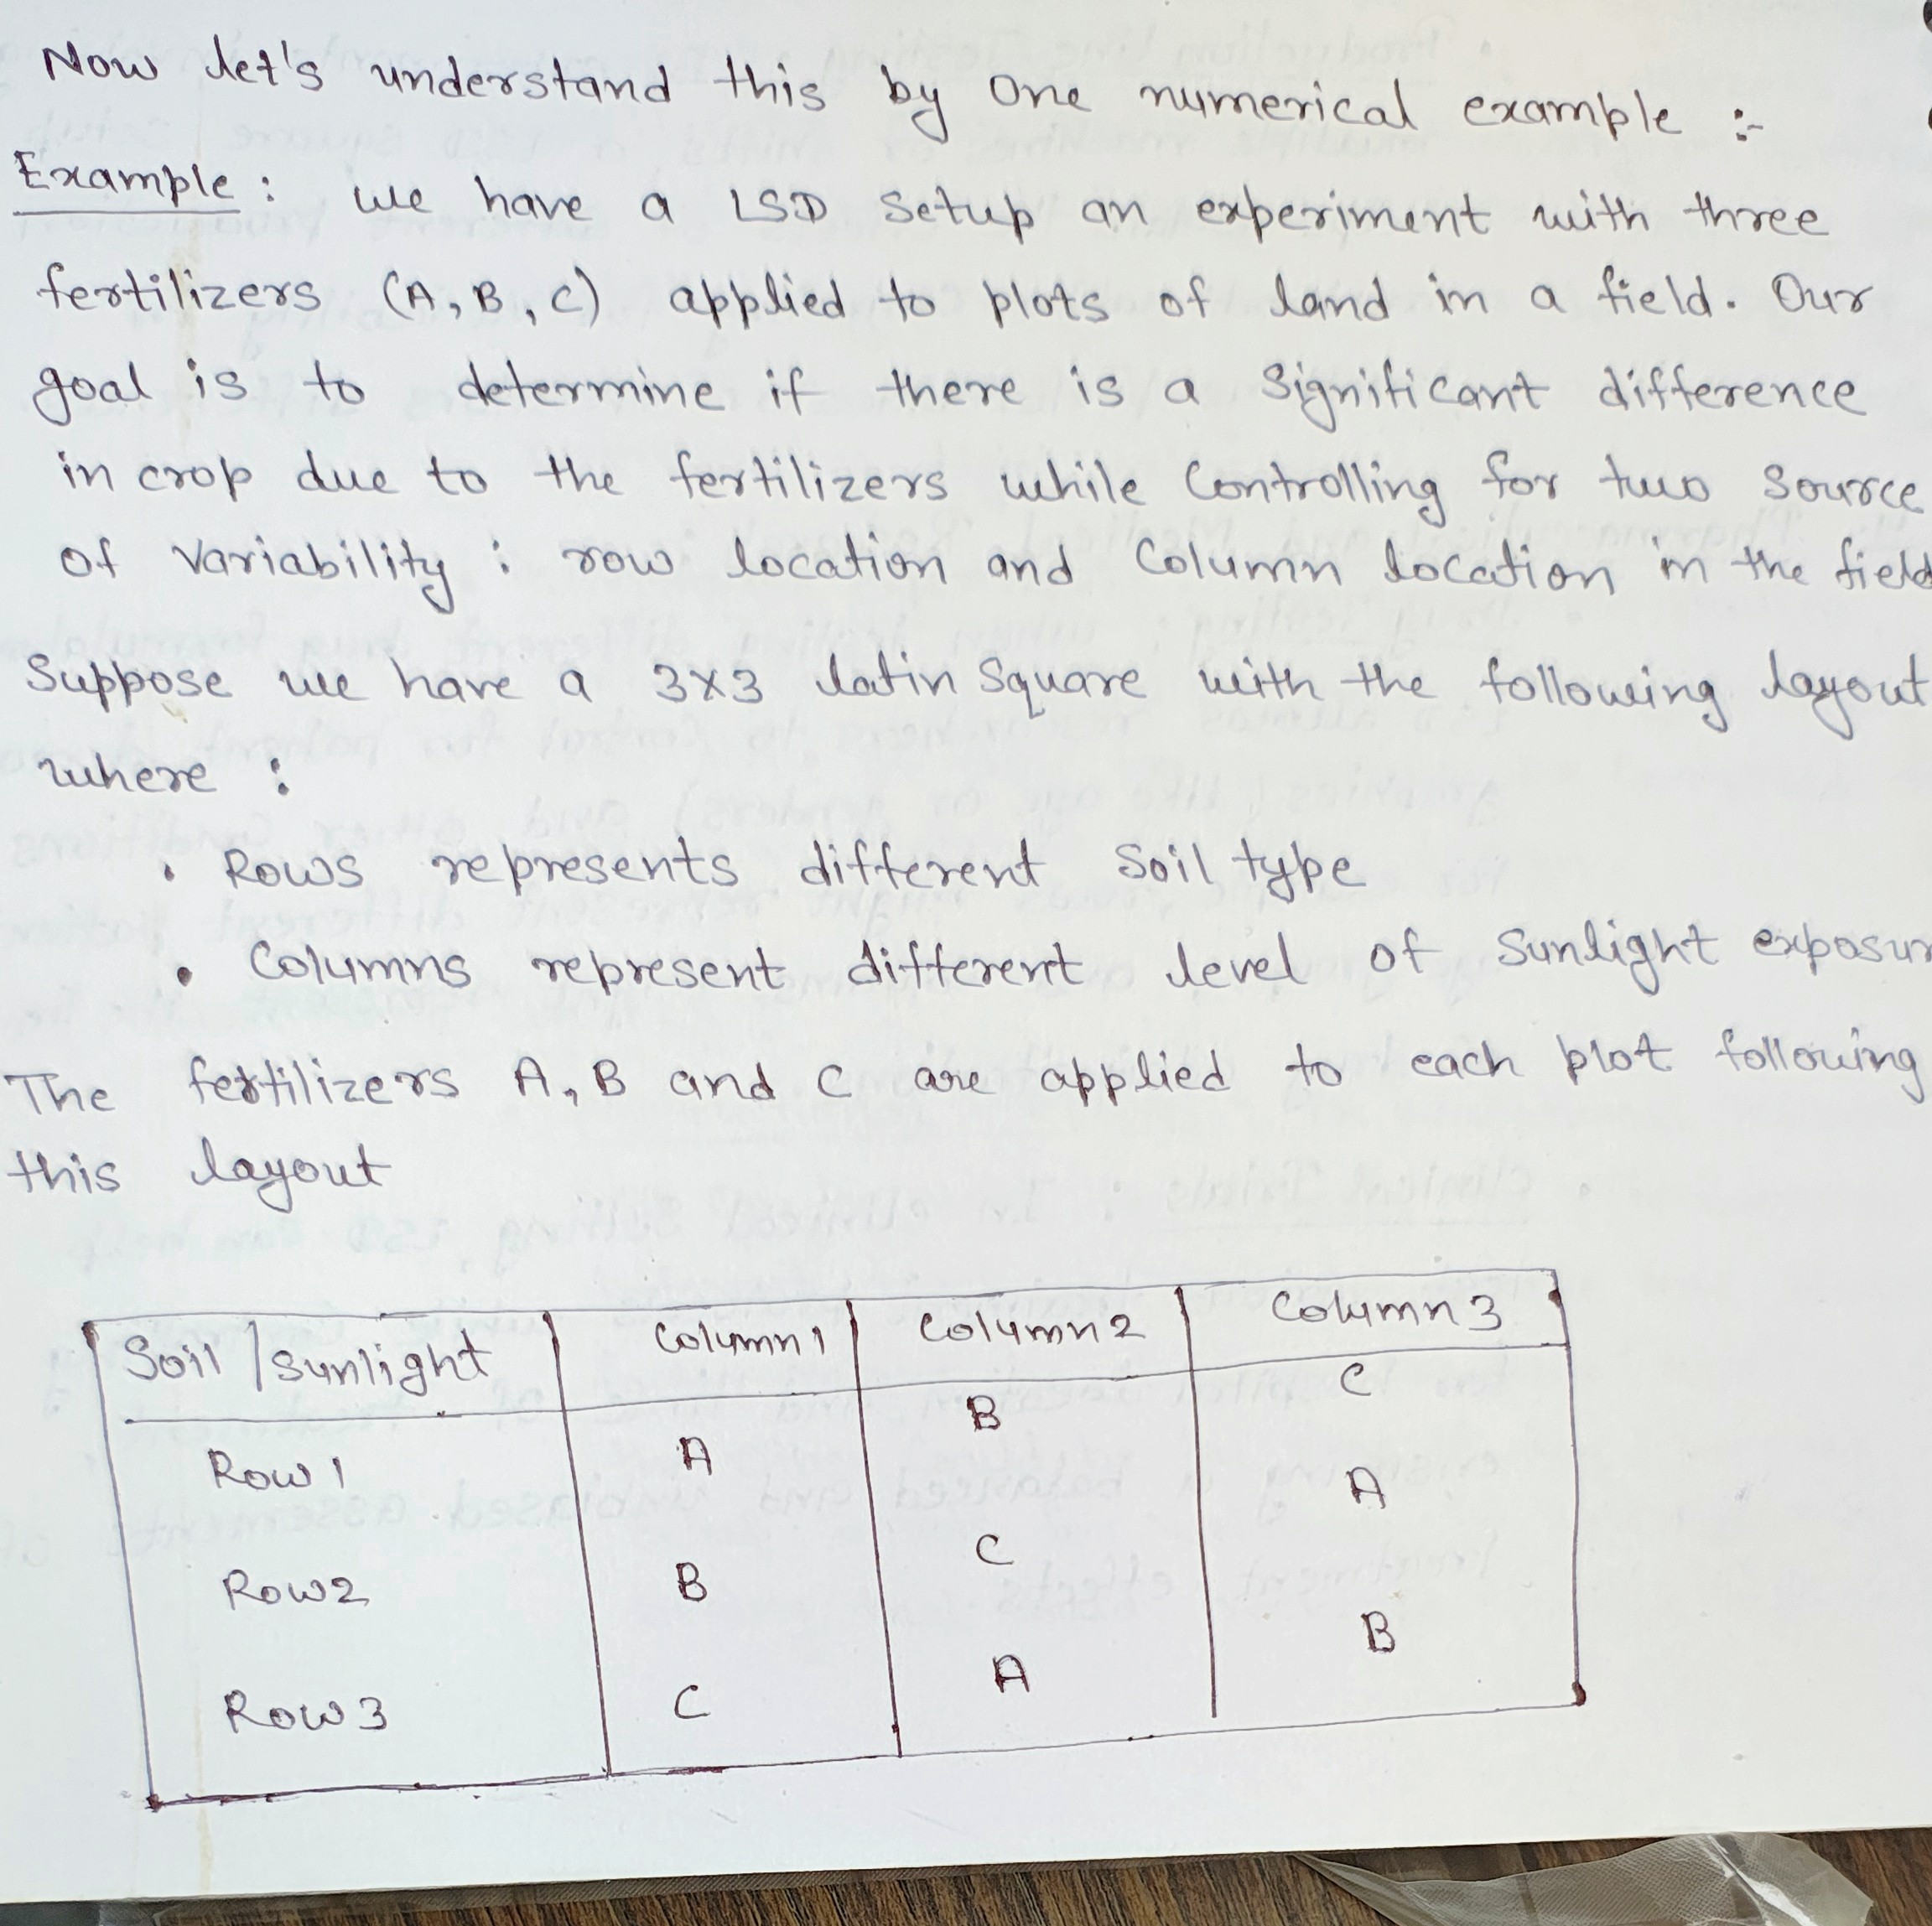 Now let's understand this by one numerical example :-
Example : We have a LSD setup an experiment with three
fertilizers (A, B, C) applied to plots of land in a field. Our
goal is to determine if there is a significant difference
in crop due to the fertilizers while Controlling for two source
of variability : row location and Column location in the field
Suppose we have a 3x3 latin Square with the following layout
where :
• Rows represents different Soil type
• Columns represent different level of Sunlight exposur
The fertilizers A, B and C are applied to each plot following
this layout
Soil / sunlight Column 1 Column 2 Column 3
Row 1 A B C
Row 2 B C A
Row 3 C A B